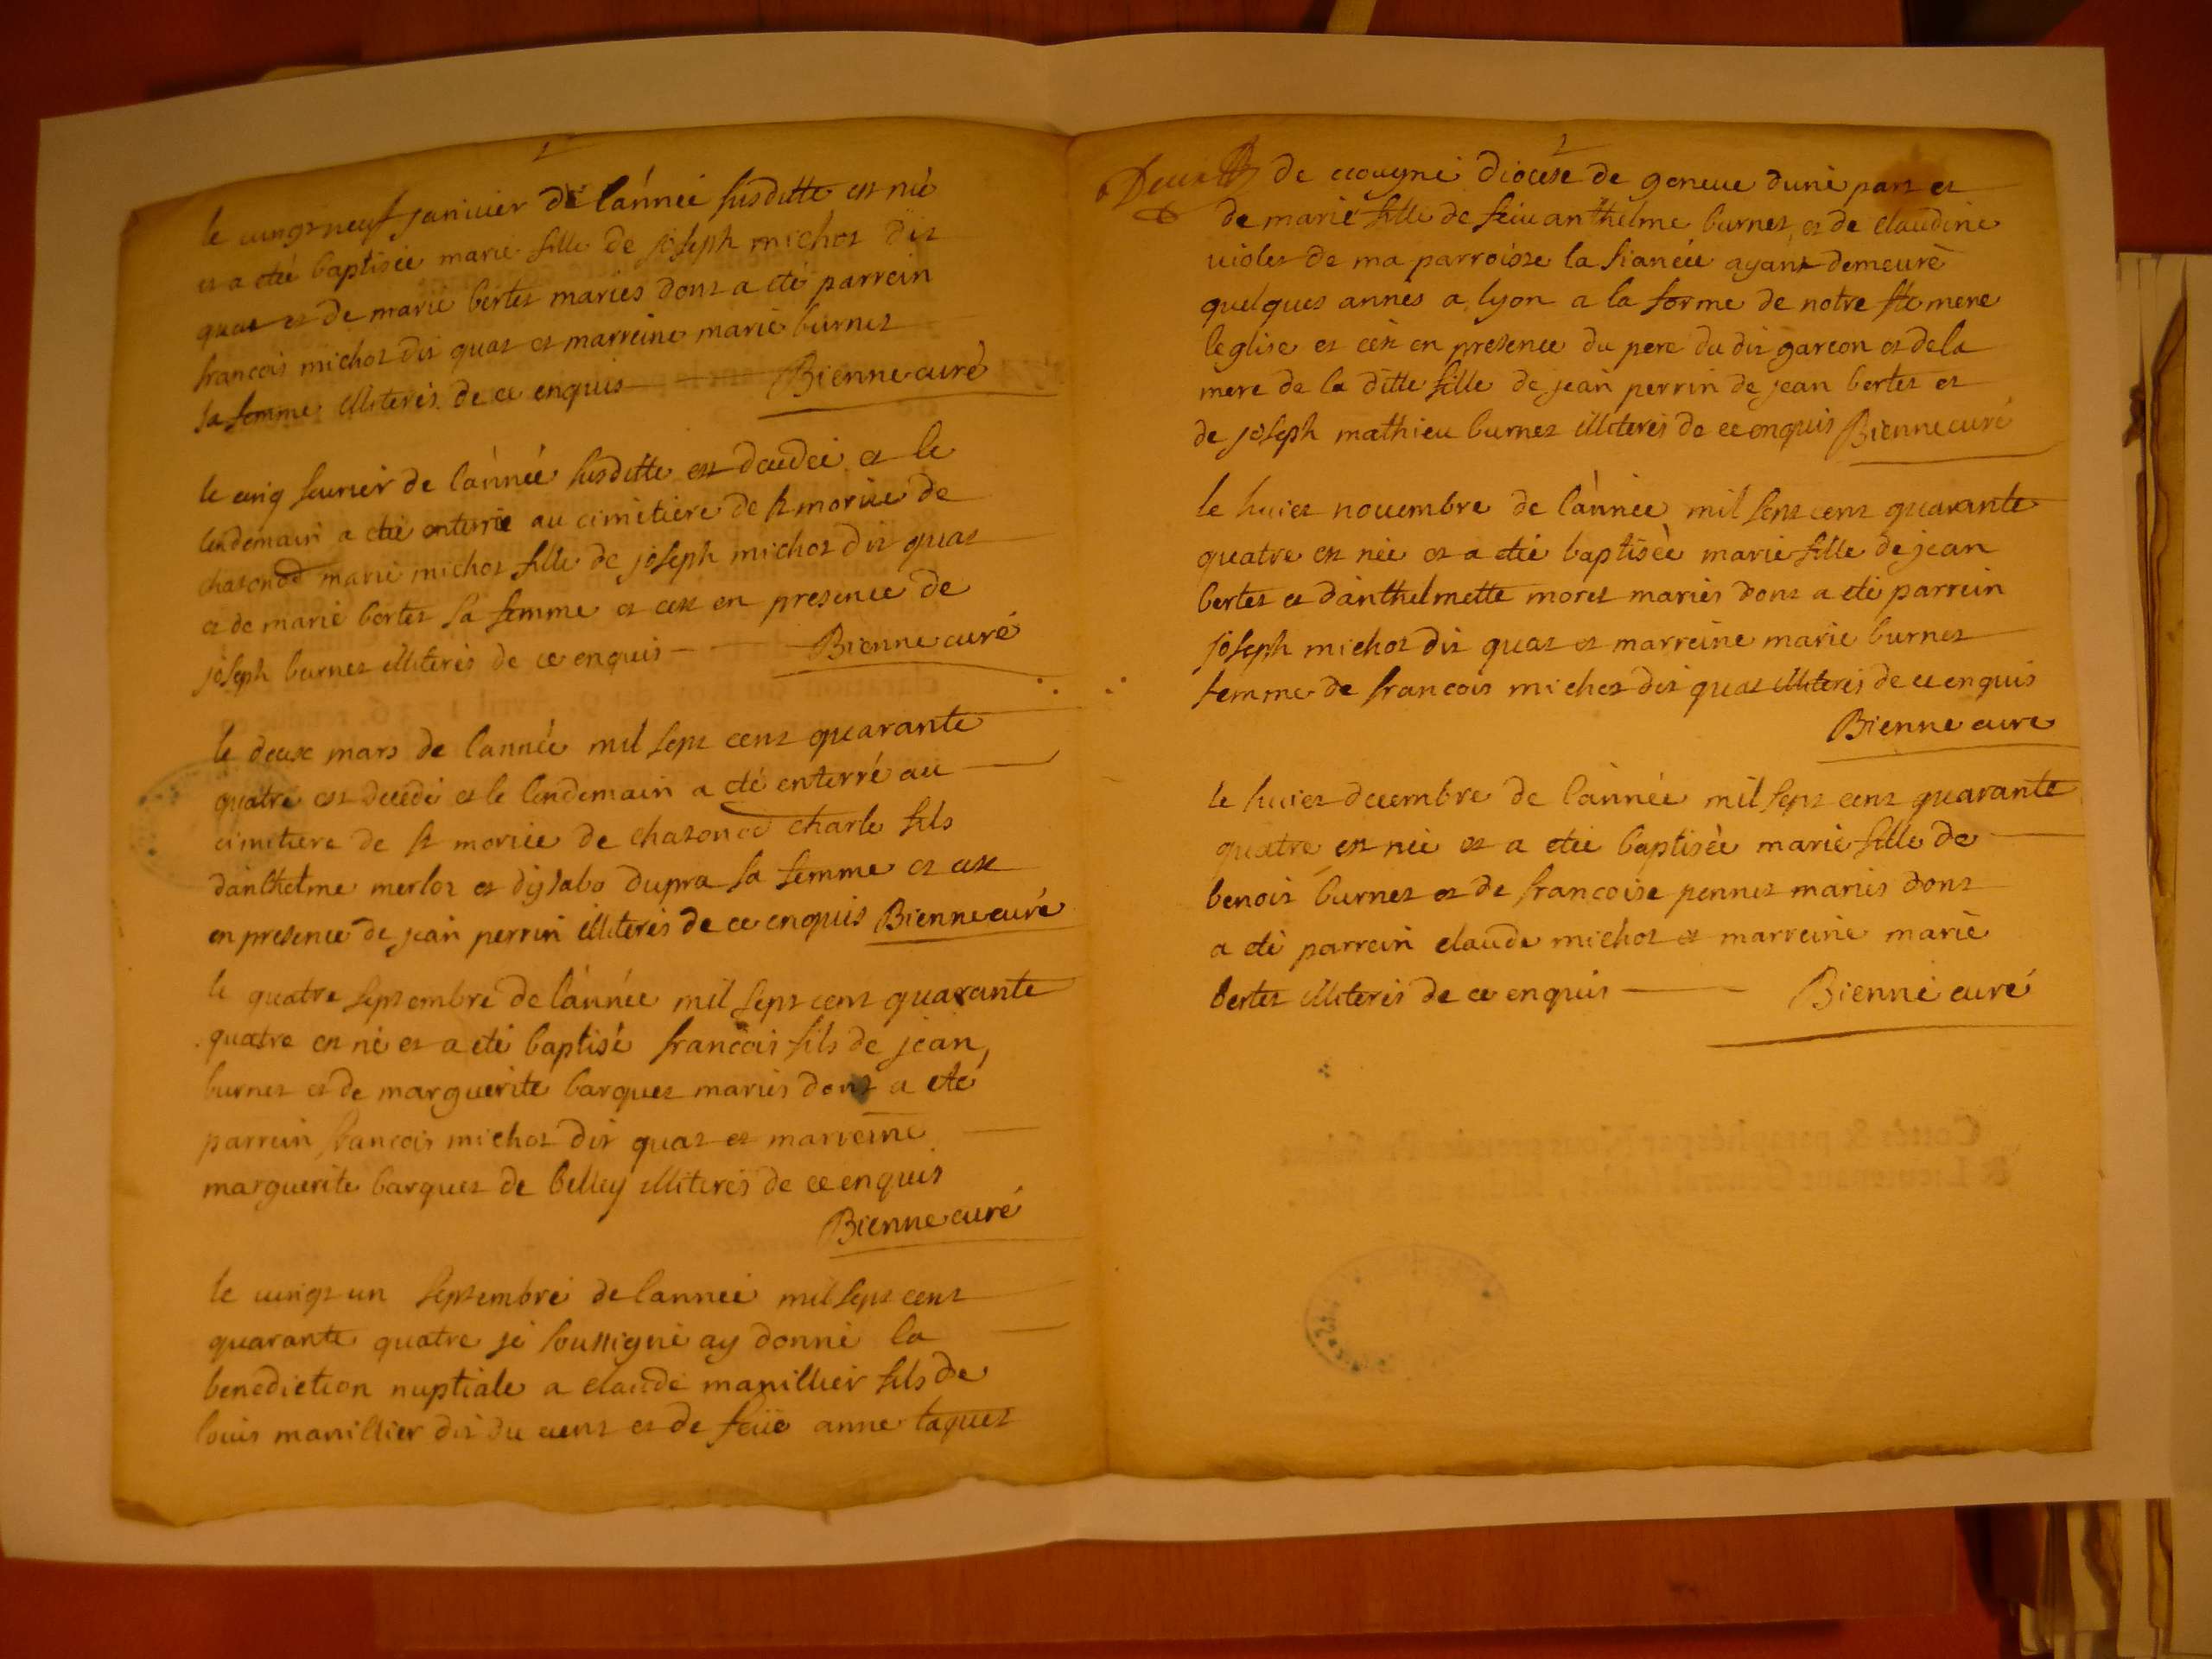 le vingt neuf janivier de lánnée susditte est nèè
et a etéé baptisée marie fille de joseph michot dit
quat et de marie bertet mariés dont a eté parrein
francois michot dit quat et marreine marie burnet
sa femme illiterés de ce enquis Bienne curé
le cinq fevrier de lánnée susditte est decedée et le
lendemain a etée enterrée au cimitiere de st morice de
chazonod marie michot fille de joseph michot dit quat
et de marie bertet sa femme et cest en presence de
joseph burnet illiterés de ce enquis Bienne curé
le deux mars de lannée mil sept cent quarante
quatre est decedé et le lendemain a eté enterré au
cimitiere de st morice de chazonod charle fils
danthelme merlot et dysabo dupra sa femme et cest
en presence de jean perrin illiterés de ce enquis Bienne curé
le quatre septembre de lánnée mil sept cent quarante
quatre est né et a eté baptisé francois fils de jean
burnet et de marguerite barquet mariés dont a eté
parrein francois michot dit quat et marreine
marguerite barquet de belley illiterés de ce enquis
Bienne curé
le vingt un septembre de lannee mil sept cent
quarante quatre je soussigné ay donné la
benediction nuptiale a claude manillier fils de
louis manillier dit du cent et de feüe anne taquet
2
Deux de diocese de geneve dune part et
de marie fille de feu anthelme burnet et de claudine
violet de ma parroisse la fiancée ayant demeuré
quelques annés a lyon a la forme de notre ste mere
leglise et cest en presence du pere du dit garcon et de la
mere de la ditte fille de jean perrin de jean bertet et
de joseph mathieu burnet illiterés de ce enquis Bienne curé
le huict novembre de lánnée mil sept cent quarante
quatre est née et a etée baptisèe marie fille de jean
bertet et danthelmette moret mariés dont a eté parrein
joseph michot dit quat et marreine marie burnet
femme de francois michot dit quat illiterés de ce enquis
Bienne curé
le huict decembre de lánnée mil sept cent quarante
quatre est née et a etée baptisèe marie fille de
benoit burnet et de francoise pennet mariés dont
a eté parrein claude michot et marreine marie
bertet illiterés de ce enquis Bienne curé